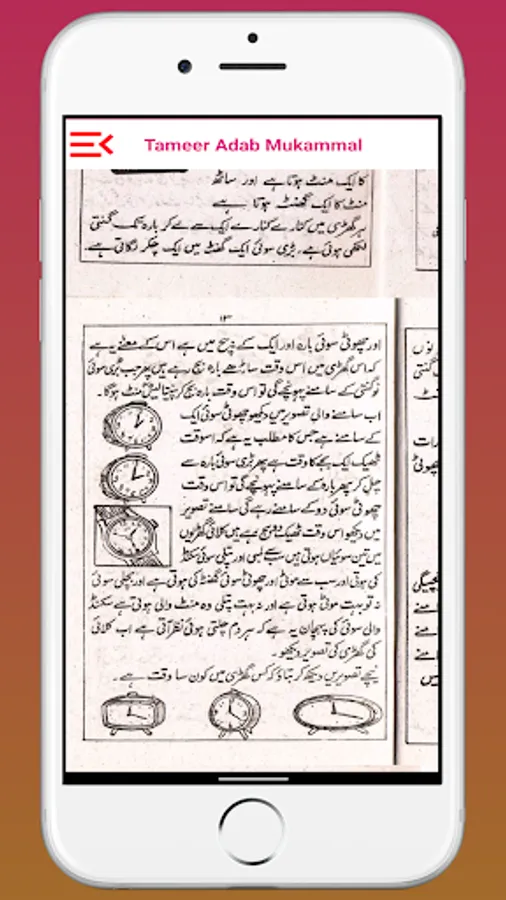 Tameer Adab Mukammal
کا ایک منٹ ہوتا ہے اور ساٹھ
منٹ کا ایک گھنٹہ ہوتا ہے
ہر گھڑی میں کنارے کنارے ایک سے لے کر بارہ تک گنتی
لکھی ہوئی ہے، بڑی سوئی ایک گھنٹہ میں ایک چکر لگاتی ہے۔
۱۳
اور چھوٹی سوئی بارہ اور ایک کے بیچ میں ہے اس کے معنے یہ ہے
کہ اس گھڑی میں اس وقت ساڑھے بارہ بج رہے ہیں پھر جب بڑی سوئی
نو گنتی کے سامنے پہونچے گی تو اس وقت بارہ بج کر پینتالیس منٹ ہوگا۔
اب سامنے والی تصویر میں دیکھو چھوٹی سوئی ایک
کے سامنے ہے جس کا مطلب یہ ہے کہ اسوقت
ٹھیک ایک بجے کا وقت ہے پھر بڑی سوئی بارہ سے
چل کر پھر بارہ کے سامنے پہونچے گی تو اس وقت
چھوٹی سوئی دو کے سامنے رہے گی سامنے تصویر
میں دیکھو اس وقت ٹھیک بج رہے ہیں کلائی گھڑیوں
میں تین سوئیاں ہوتی ہیں سب سے لمبی اور پتلی سوئی سکنڈ
کی ہوتی اور سب سے موٹی اور چھوٹی سوئی گھنٹہ کی ہوتی ہے اور بچلی سوئی
نہ تو بہت موٹی ہوتی ہے اور نہ بہت پتلی وہ منٹ والی ہوتی ہے سکنڈ
والی سوئی کی پہچان یہ ہے کہ ہر دم چلتی ہوئی نظر آتی ہے اب کلائی
کی گھڑی کی تصویر دیکھو۔
نیچے تصویریں دیکھ کر بتاؤ کہ کس گھڑی میں کون سا وقت ہے۔